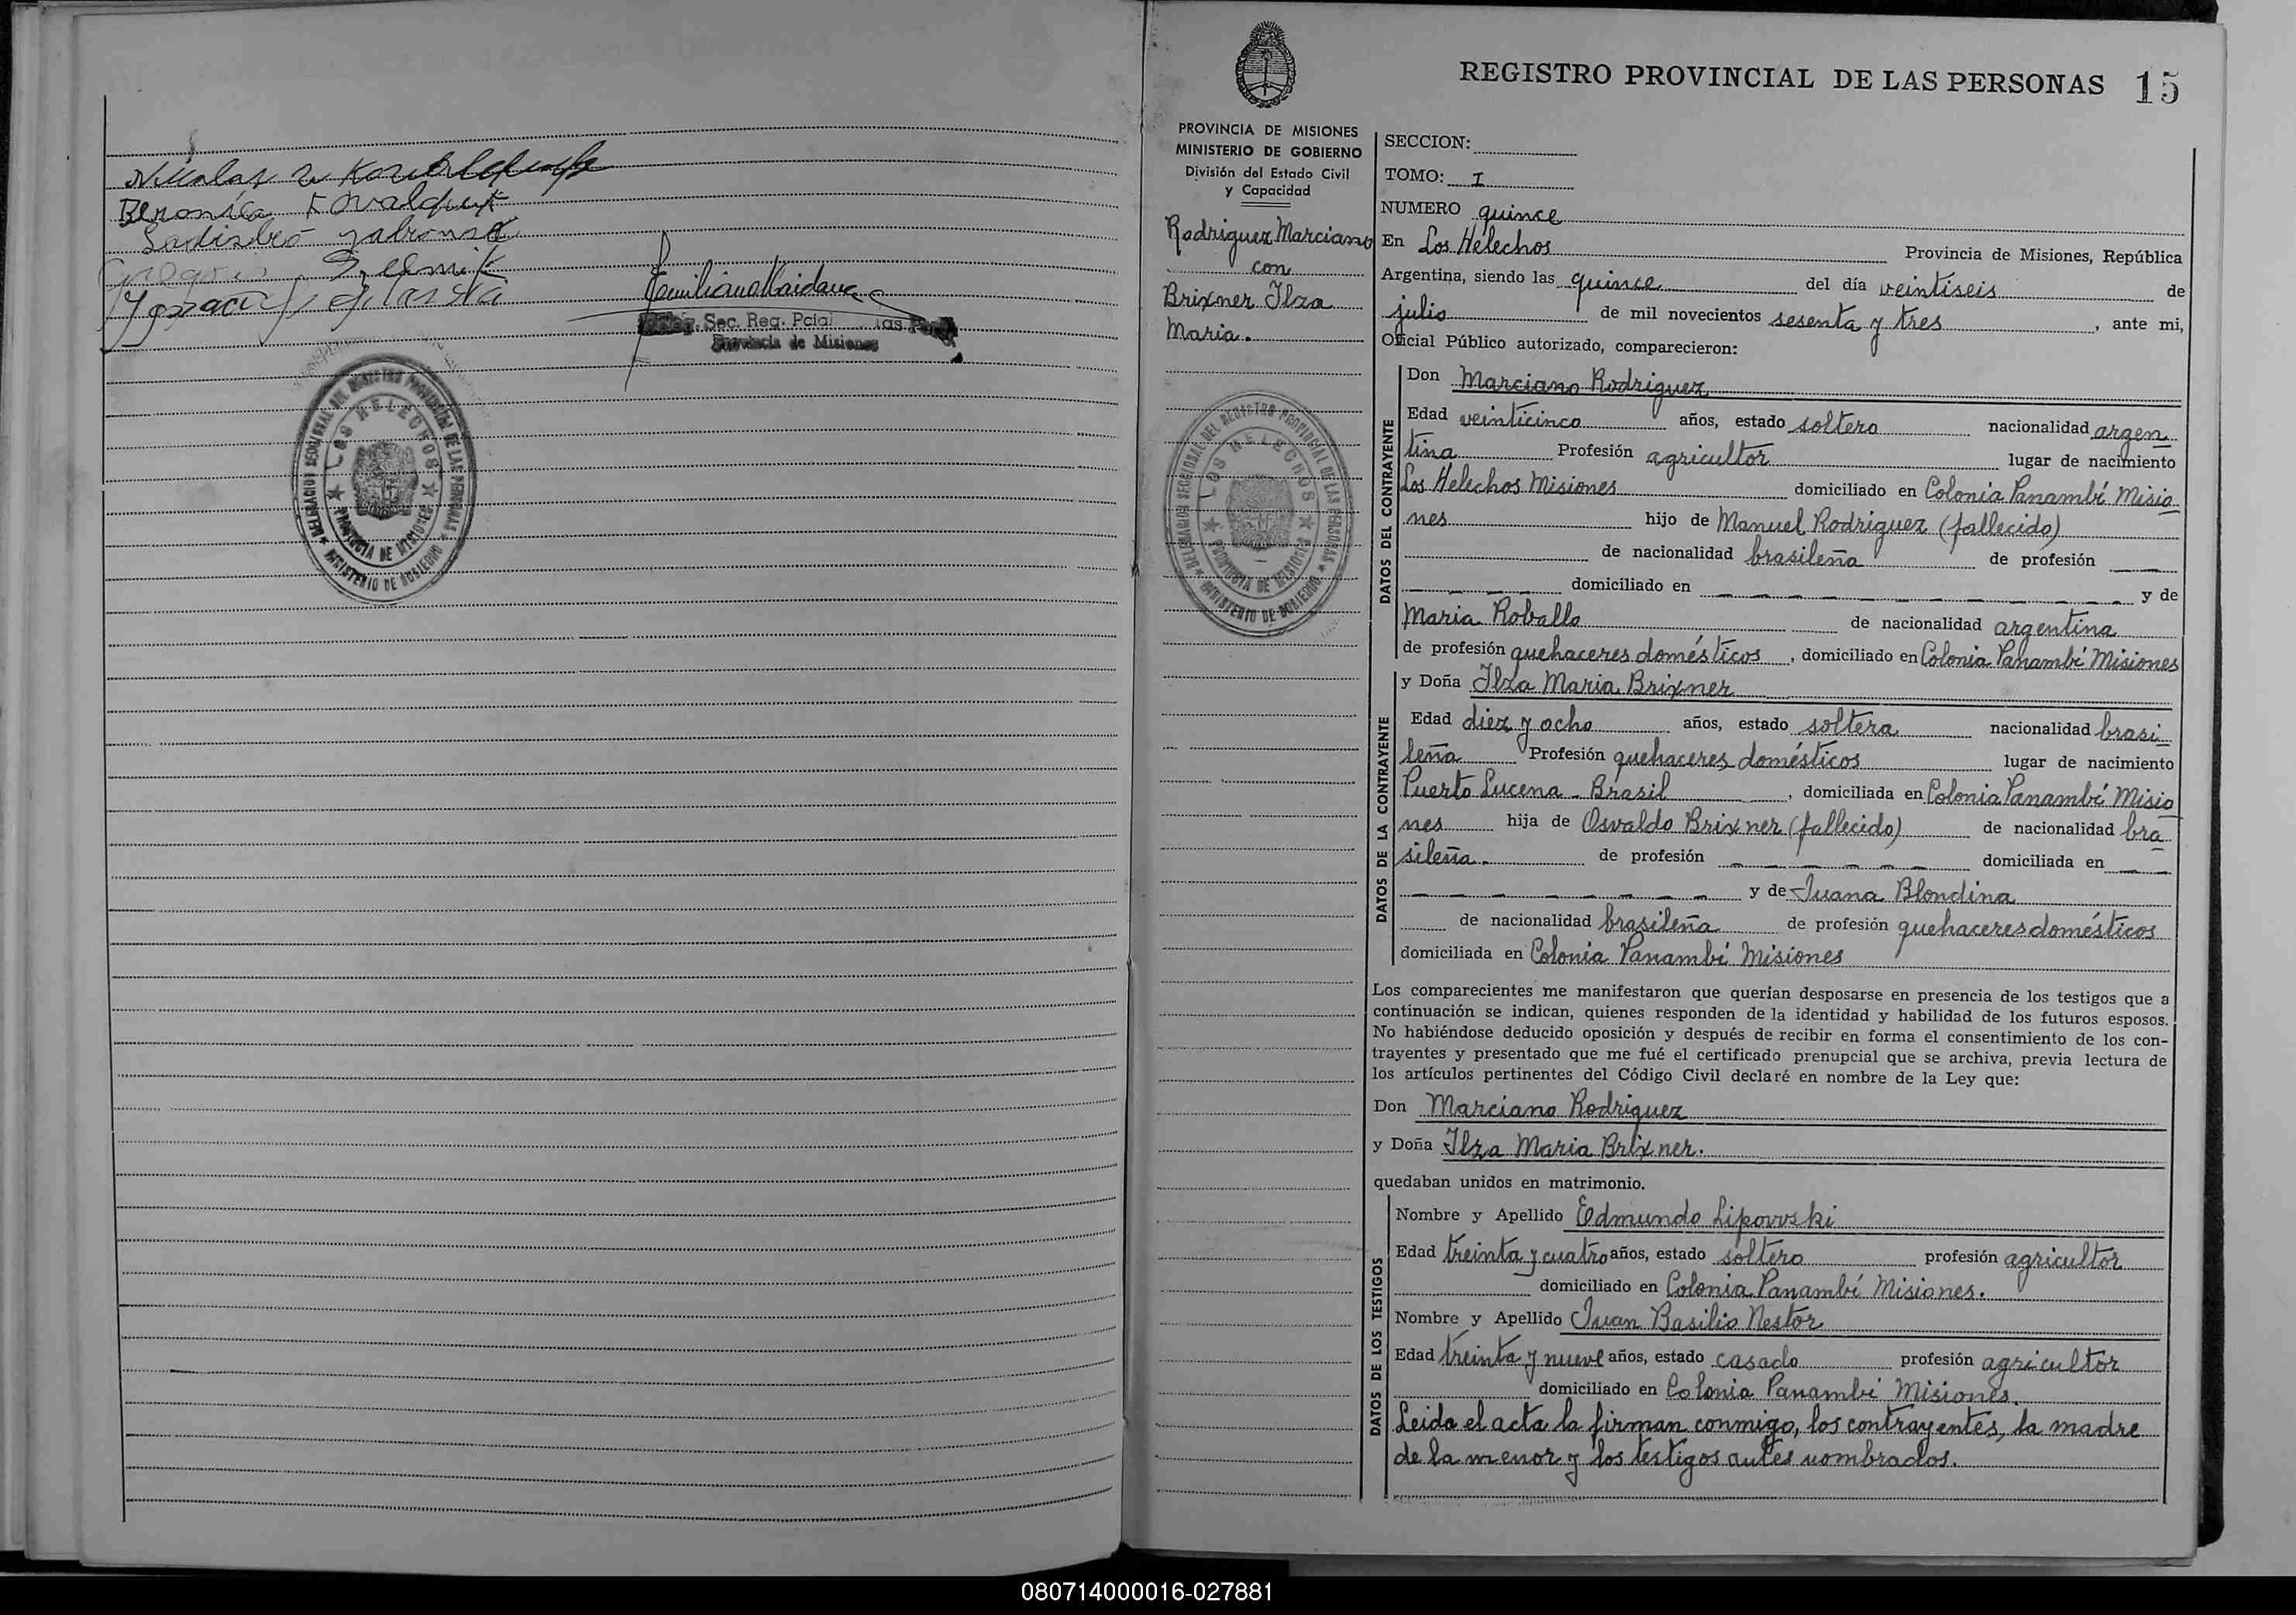 Nicolas
Beronica Kowalczuk
Ladislao
Emiliano Maidana
Sec. Reg. Pcial. las
Provincia de Misiones
DELEGACION SECCIONAL DEL REGISTRO PROVINCIAL DE LAS PERSONAS
LOS HELECHOS
PROVINCIA DE MISIONES
MINISTERIO DE GOBIERNO
REGISTRO PROVINCIAL DE LAS PERSONAS 15
PROVINCIA DE MISIONES
MINISTERIO DE GOBIERNO
División del Estado Civil
y Capacidad
Rodriguez Marciano
con
Brixner Ilza
Maria.
DELEGACION SECCIONAL DEL REGISTRO PROVINCIAL DE LAS PERSONAS
LOS HELECHOS
PROVINCIA DE MISIONES
MINISTERIO DE GOBIERNO
SECCION:
TOMO: I
NUMERO quince
En Los Helechos Provincia de Misiones, República
Argentina, siendo las quince del día veintiseis de
julio de mil novecientos sesenta y tres, ante mi,
Oficial Público autorizado, comparecieron:
DATOS DEL CONTRAYENTE
Don Marciano Rodriguez
Edad veinticinco años, estado soltero nacionalidad argen
tina Profesión agricultor lugar de nacimiento
Los Helechos Misiones domiciliado en Colonia Panambí Misio
nes hijo de Manuel Rodriguez (fallecido)
de nacionalidad brasileña de profesión —
— — — domiciliado en — — — — — — — y de
Maria Roballo de nacionalidad argentina
de profesión quehaceres domésticos, domiciliado en Colonia Panambí Misiones
DATOS DE LA CONTRAYENTE
y Doña Ilza Maria Brixner
Edad diez y ocho años, estado soltera nacionalidad brasi
leña Profesión quehaceres domésticos lugar de nacimiento
Puerto Lucena - Brasil, domiciliada en Colonia Panambí Misio
nes hija de Osvaldo Brixner (fallecido) de nacionalidad bra
sileña. de profesión — — — — — domiciliada en — —
— — — — — — — y de Juana Blondina
de nacionalidad brasileña de profesión quehaceres domésticos
domiciliada en Colonia Panambí Misiones
Los comparecientes me manifestaron que querían desposarse en presencia de los testigos que a
continuación se indican, quienes responden de la identidad y habilidad de los futuros esposos.
No habiéndose deducido oposición y después de recibir en forma el consentimiento de los con-
trayentes y presentado que me fué el certificado prenupcial que se archiva, previa lectura de
los artículos pertinentes del Código Civil declaré en nombre de la Ley que:
Don Marciano Rodriguez
y Doña Ilza Maria Brixner.
quedaban unidos en matrimonio.
DATOS DE LOS TESTIGOS
Nombre y Apellido Edmundo Lipovvski
Edad treinta y cuatro años, estado soltero profesión agricultor
domiciliado en Colonia Panambí Misiones.
Nombre y Apellido Juan Basilio Nestor
Edad treinta y nueve años, estado casado profesión agricultor
domiciliado en Colonia Panambí Misiones.
Leida el acta la firman conmigo, los contrayentes, la madre
de la menor y los testigos antes nombrados.
080714000016-027881